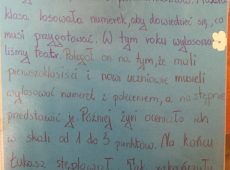 klasa losowała numerek, aby dowiedzieć się, co
musi przygotować. W tym roku wylosowa-
liśmy teatr. Polegał on na tym, że mali
pierwszoklasiści i nowi uczniowie musieli
wylosować numerek z poleceniem, a następnie
przedstawić je. Później żyri oceniało ich
w skali od 1 do 3 punktów. Na końcu
Łukasz